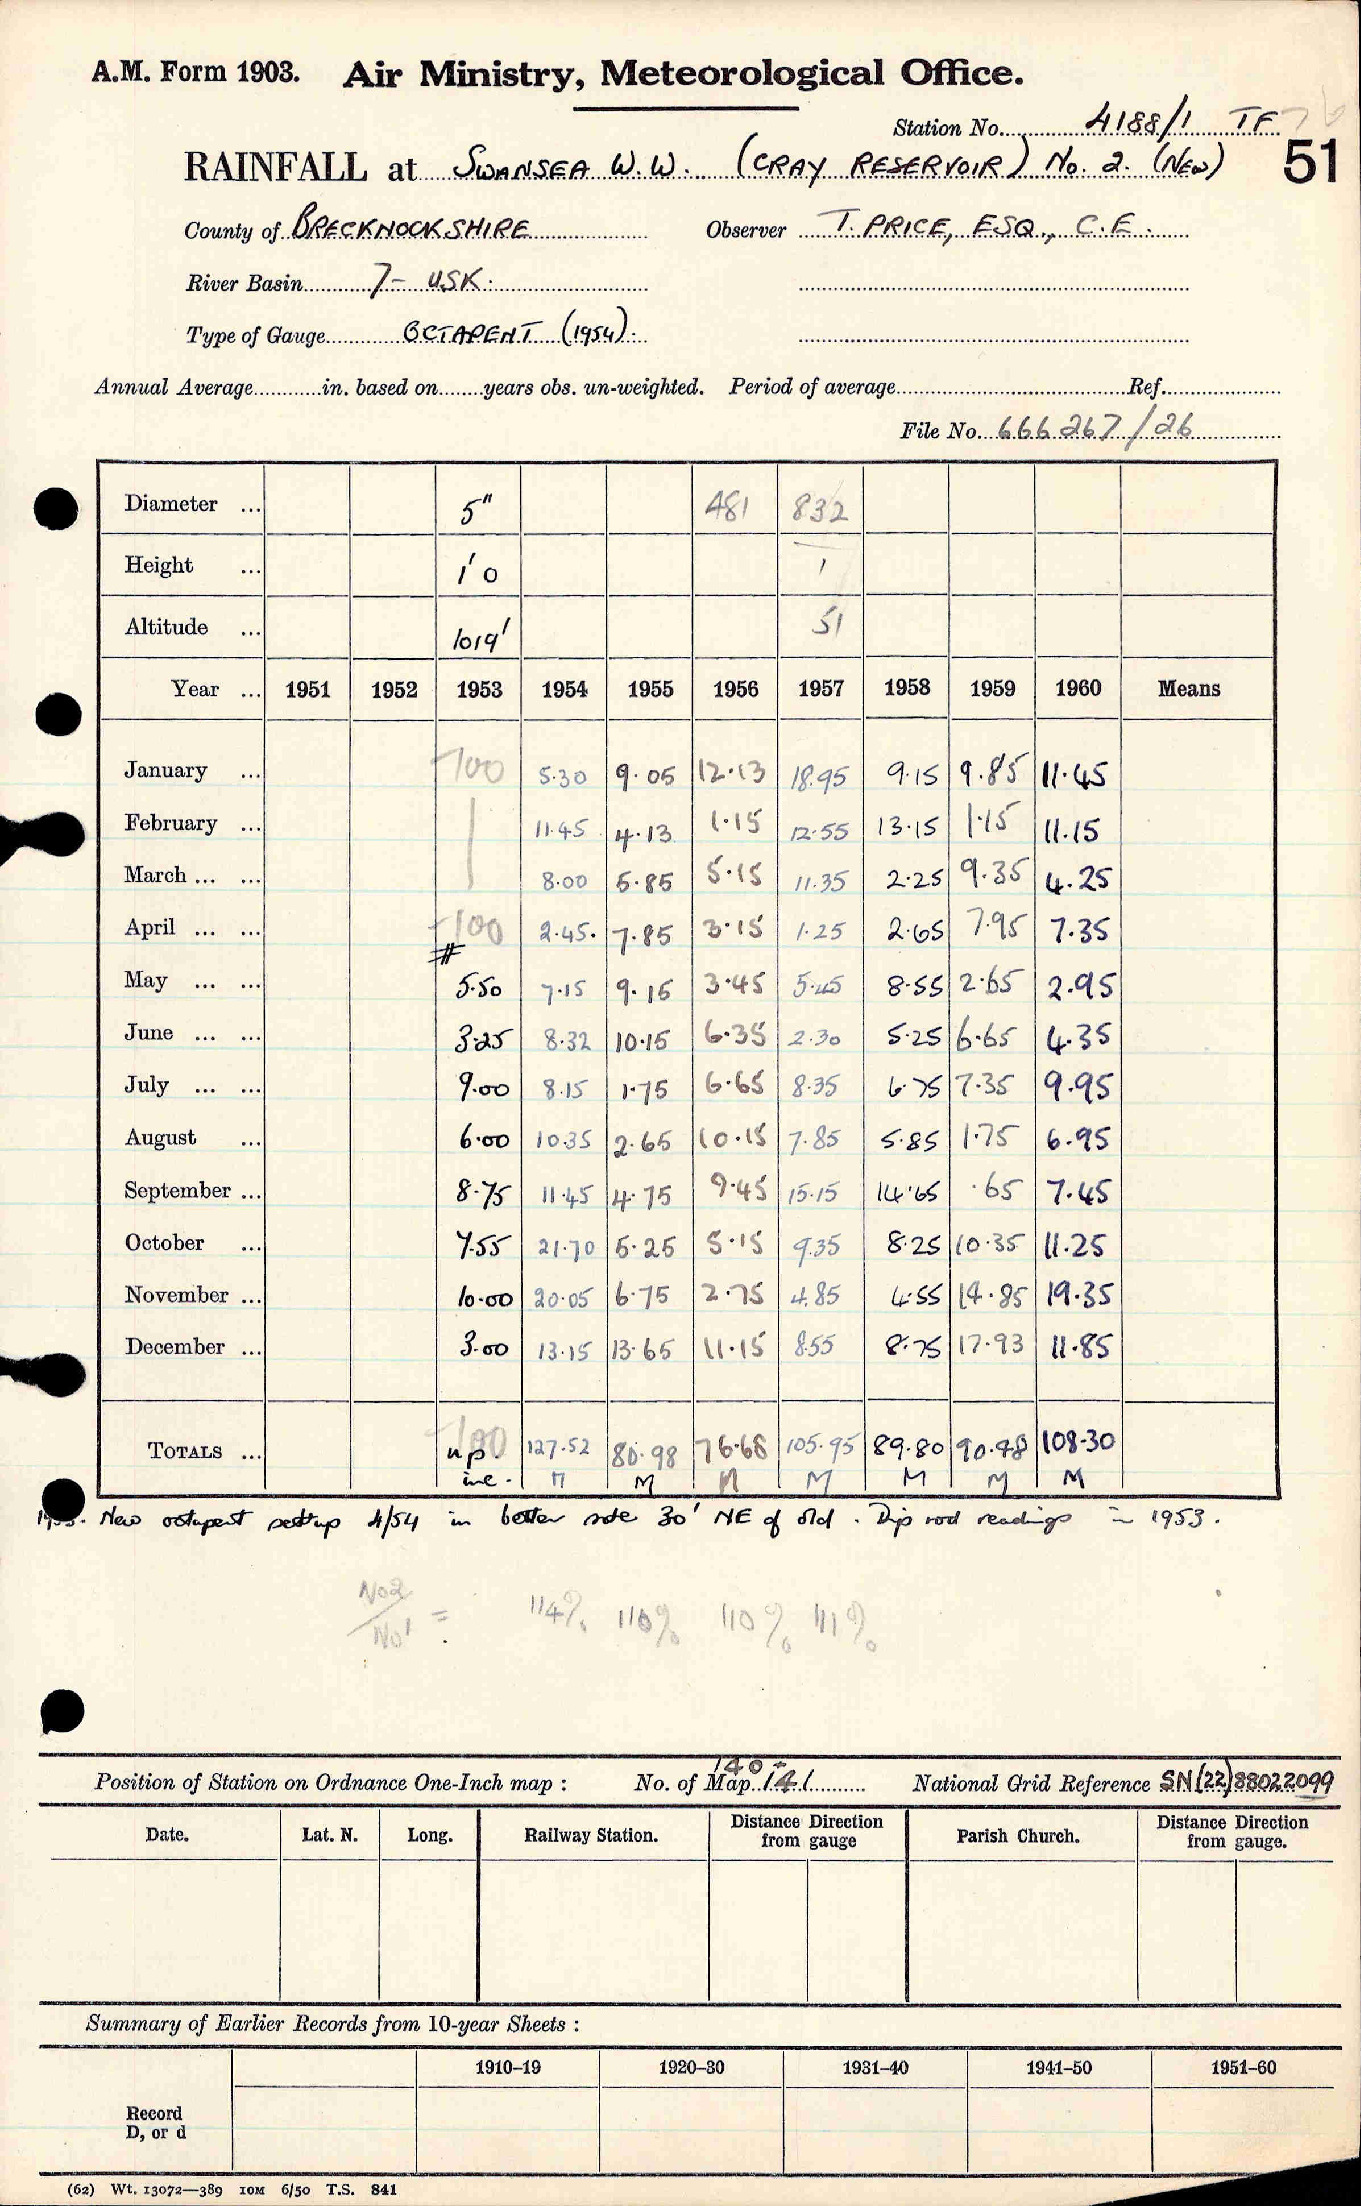 A.M. Form 1903. Air Ministry, Meteorological Office.
Station No. 4188/1 TF 76
RAINFALL at SWANSEA W.W. (CRAY RESERVOIR) No. 2. (NEW) 51
County of BRECKNOCKSHIRE Observer T. PRICE, ESQ., C.E.
River Basin 7- USK.
Type of Gauge OCTAPENT (1954).
Annual Average in. based on years obs. un-weighted. Period of average Ref.
File No. 666267/26
Diameter ... 5" 481 832
Height ... 1'0 1
Altitude ... 1019' 51
Year ... 1951 1952 1953 1954 1955 1956 1957 1958 1959 1960 Means
January ... -100 5.30 9.05 12.13 18.95 9.15 9.85 11.45
February ... 11.45 4.13 1.15 12.55 13.15 1.15 11.15
March ... ... 8.00 5.85 5.15 11.35 2.25 9.35 4.25
April ... ... -100 2.45. 7.85 3.15 1.25 2.65 7.95 7.35
May ... ... # 5.50 7.15 9.15 3.45 5.45 8.55 2.65 2.95
June ... ... 3.25 8.32 10.15 6.35 2.30 5.25 6.65 4.35
July ... ... 9.00 8.15 1.75 6.65 8.35 6.75 7.35 9.95
August ... 6.00 10.35 2.65 10.15 7.85 5.85 1.75 6.95
September ... 8.75 11.45 4.75 9.45 15.15 14.65 .65 7.45
October ... 7.55 21.70 5.25 5.15 9.35 8.25 10.35 11.25
November ... 10.00 20.05 6.75 2.75 4.85 4.55 14.85 19.35
December ... 3.00 13.15 13.65 11.15 8.55 8.75 17.93 11.85
TOTALS ... -100 n.p. 127.52 80.98 76.68 105.95 89.80 90.48 108.30
inc. M M M M M M M
New octapent set up 4/54 in better site 30' NE of old. Dip rod readings in 1953.
No2/No1 = 114% 110% 110% 111%
140+
Position of Station on Ordnance One-Inch map : No. of Map 141 National Grid Reference SN(22)88022099
Date. Lat. N. Long. Railway Station. Distance Direction from gauge Parish Church. Distance Direction from gauge.
Summary of Earlier Records from 10-year Sheets :
1910–19 1920–30 1931–40 1941–50 1951–60
Record
D, or d
(62) Wt. 13072—389 10M 6/50 T.S. 841